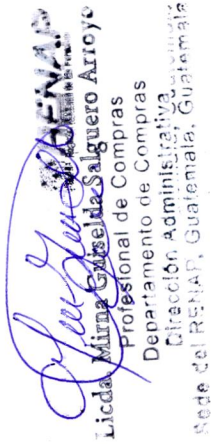 RENAP
Licda. Mirna Griselda Salguero Arroyo
Profesional de Compras
Departamento de Compras
Dirección Administrativa
Sede del RENAP, Guatemala, Guatemala